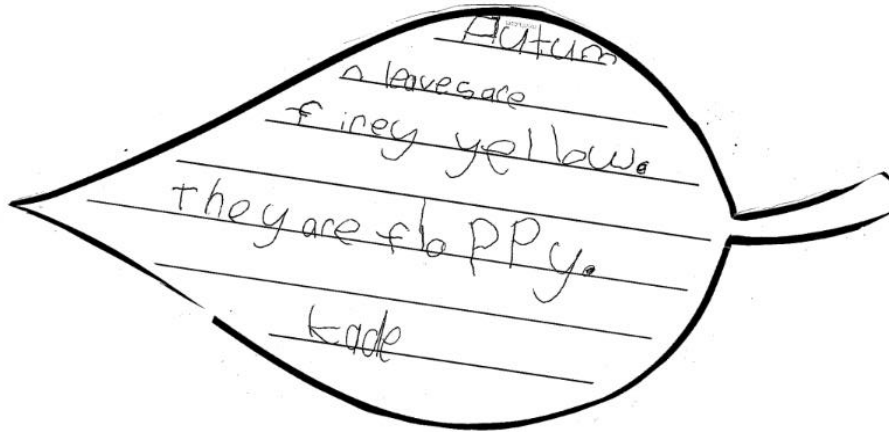 Autum
n leaves are
firey yellow.
they are floppy.
kade